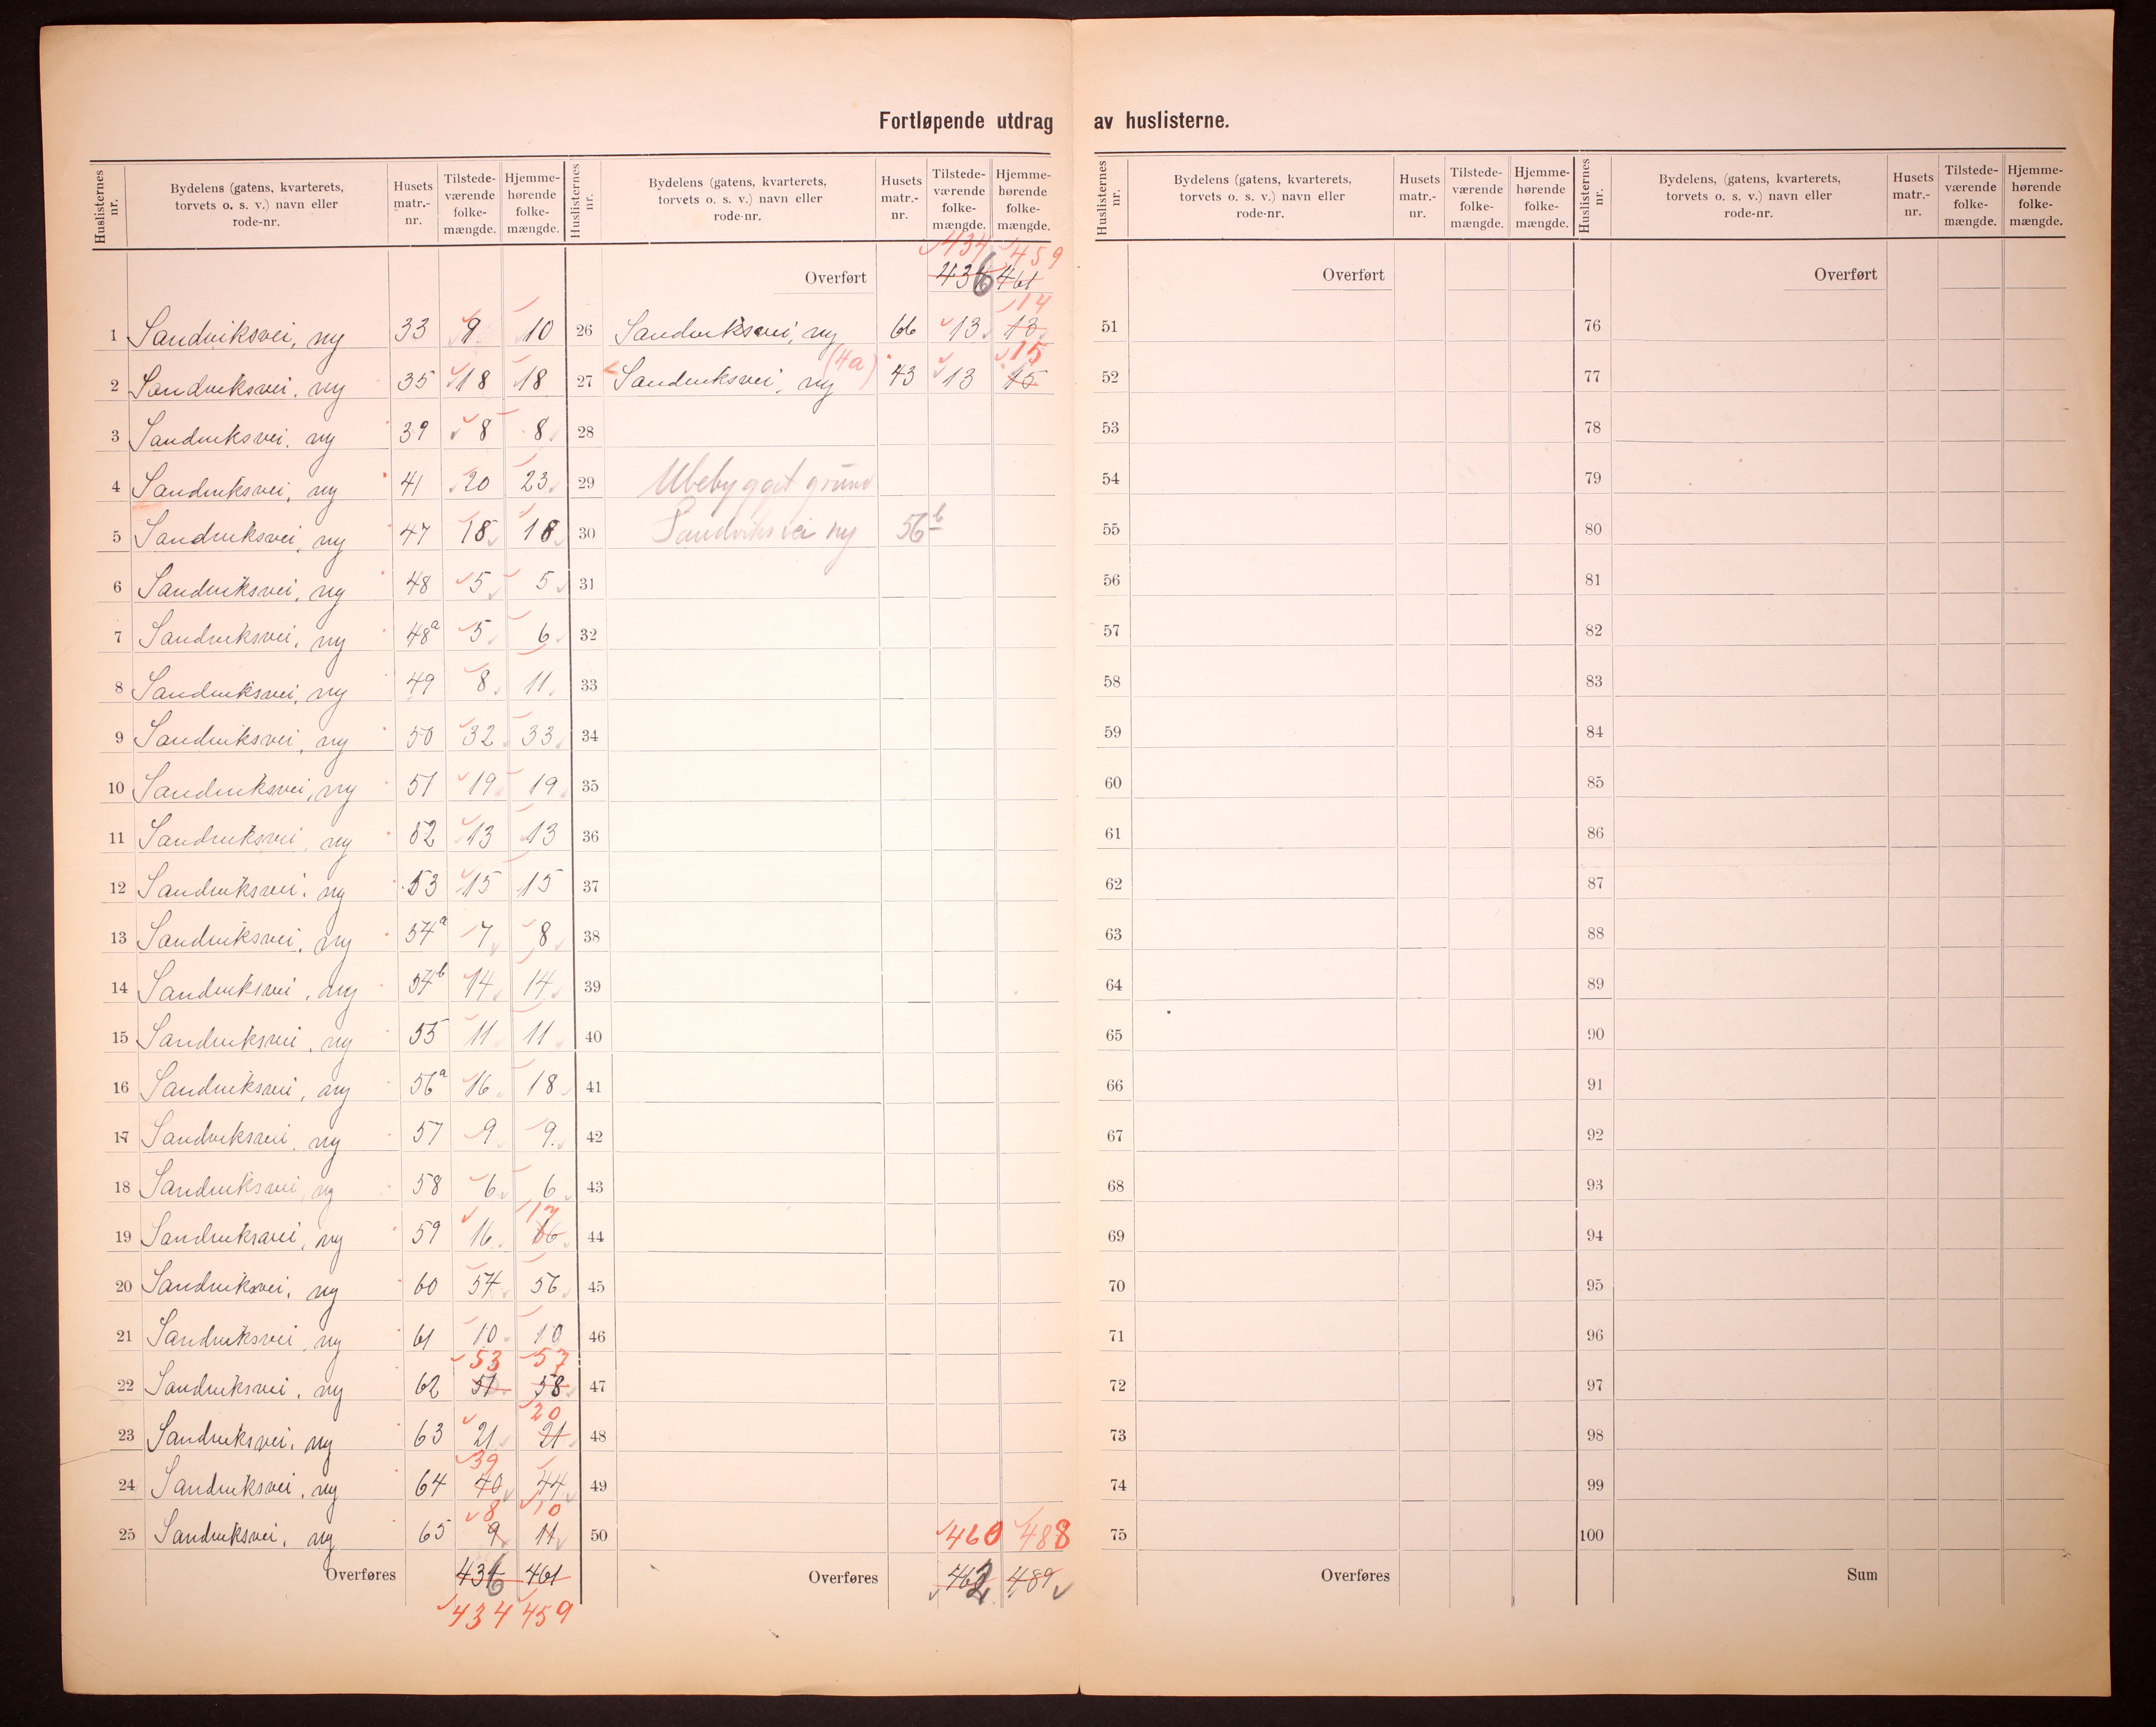 Fortløpende utdrag av huslisterne.
Huslisternes nr. Bydelens (gatens, kvarterets, torvets o. s. v.) navn eller rode-nr. Husets matr.-nr. Tilstede-værende folke-mængde. Hjemme-hørende folke-mængde.
1 Sandviksvei, ny 33 9 10
2 Sandviksvei, ny 35 18 18
3 Sandviksvei, ny 39 8 8
4 Sandviksvei, ny 41 20 23
5 Sandviksvei, ny 47 18 18
6 Sandviksvei, ny 48 5 5
7 Sandviksvei, ny 48a 5 6
8 Sandviksvei, ny 49 8 11
9 Sandviksvei, ny 50 32 33
10 Sandviksvei, ny 51 19 19
11 Sandviksvei, ny 52 13 13
12 Sandviksvei, ny 53 15 15
13 Sandviksvei, ny 54a 7 8
14 Sandviksvei, ny 54b 14 14
15 Sandviksvei, ny 55 11 11
16 Sandviksvei, ny 56a 16 18
17 Sandviksvei, ny 57 9 9.
18 Sandviksvei, ny 58 6 6
17
19 Sandviksvei, ny 59 16 16
20 Sandviksvei, ny 60 54 56
21 Sandviksvei, ny 61 10 10
53 57
22 Sandviksvei, ny 62 51 58
20
23 Sandviksvei, ny 63 21 21
39
24 Sandviksvei, ny 64 40 44
8 10
25 Sandviksvei, ny 65 9 11
Overføres 436 461
434 459
Huslisternes nr. Bydelens (gatens, kvarterets, torvets o. s. v.) navn eller rode-nr. Husets matr.-nr. Tilstede-værende folke-mængde. Hjemme-hørende folke-mængde.
434 459
Overført 436 461
14
26 Sandviksvei, ny 66 13 13
(4a) 15
27 Sandviksvei, ny 43 13 15
28
29 Ubebygget grund
30 Sandviksvei ny 56b
31
32
33
34
35
36
37
38
39
40
41
42
43
44
45
46
47
48
49
50 460 488
Overføres 462 489
Huslisternes nr. Bydelens (gatens, kvarterets, torvets o. s. v.) navn eller rode-nr. Husets matr.-nr. Tilstede-værende folke-mængde. Hjemme-hørende folke-mængde.
Overført
51
52
53
54
55
56
57
58
59
60
61
62
63
64
65
66
67
68
69
70
71
72
73
74
75
Overføres
Huslisternes nr. Bydelens, (gatens, kvarterets, torvets o. s. v.) navn eller rode-nr. Husets matr.-nr. Tilstede-værende folke-mængde. Hjemme-hørende folke-mængde.
Overført
76
77
78
79
80
81
82
83
84
85
86
87
88
89
90
91
92
93
94
95
96
97
98
99
100
Sum